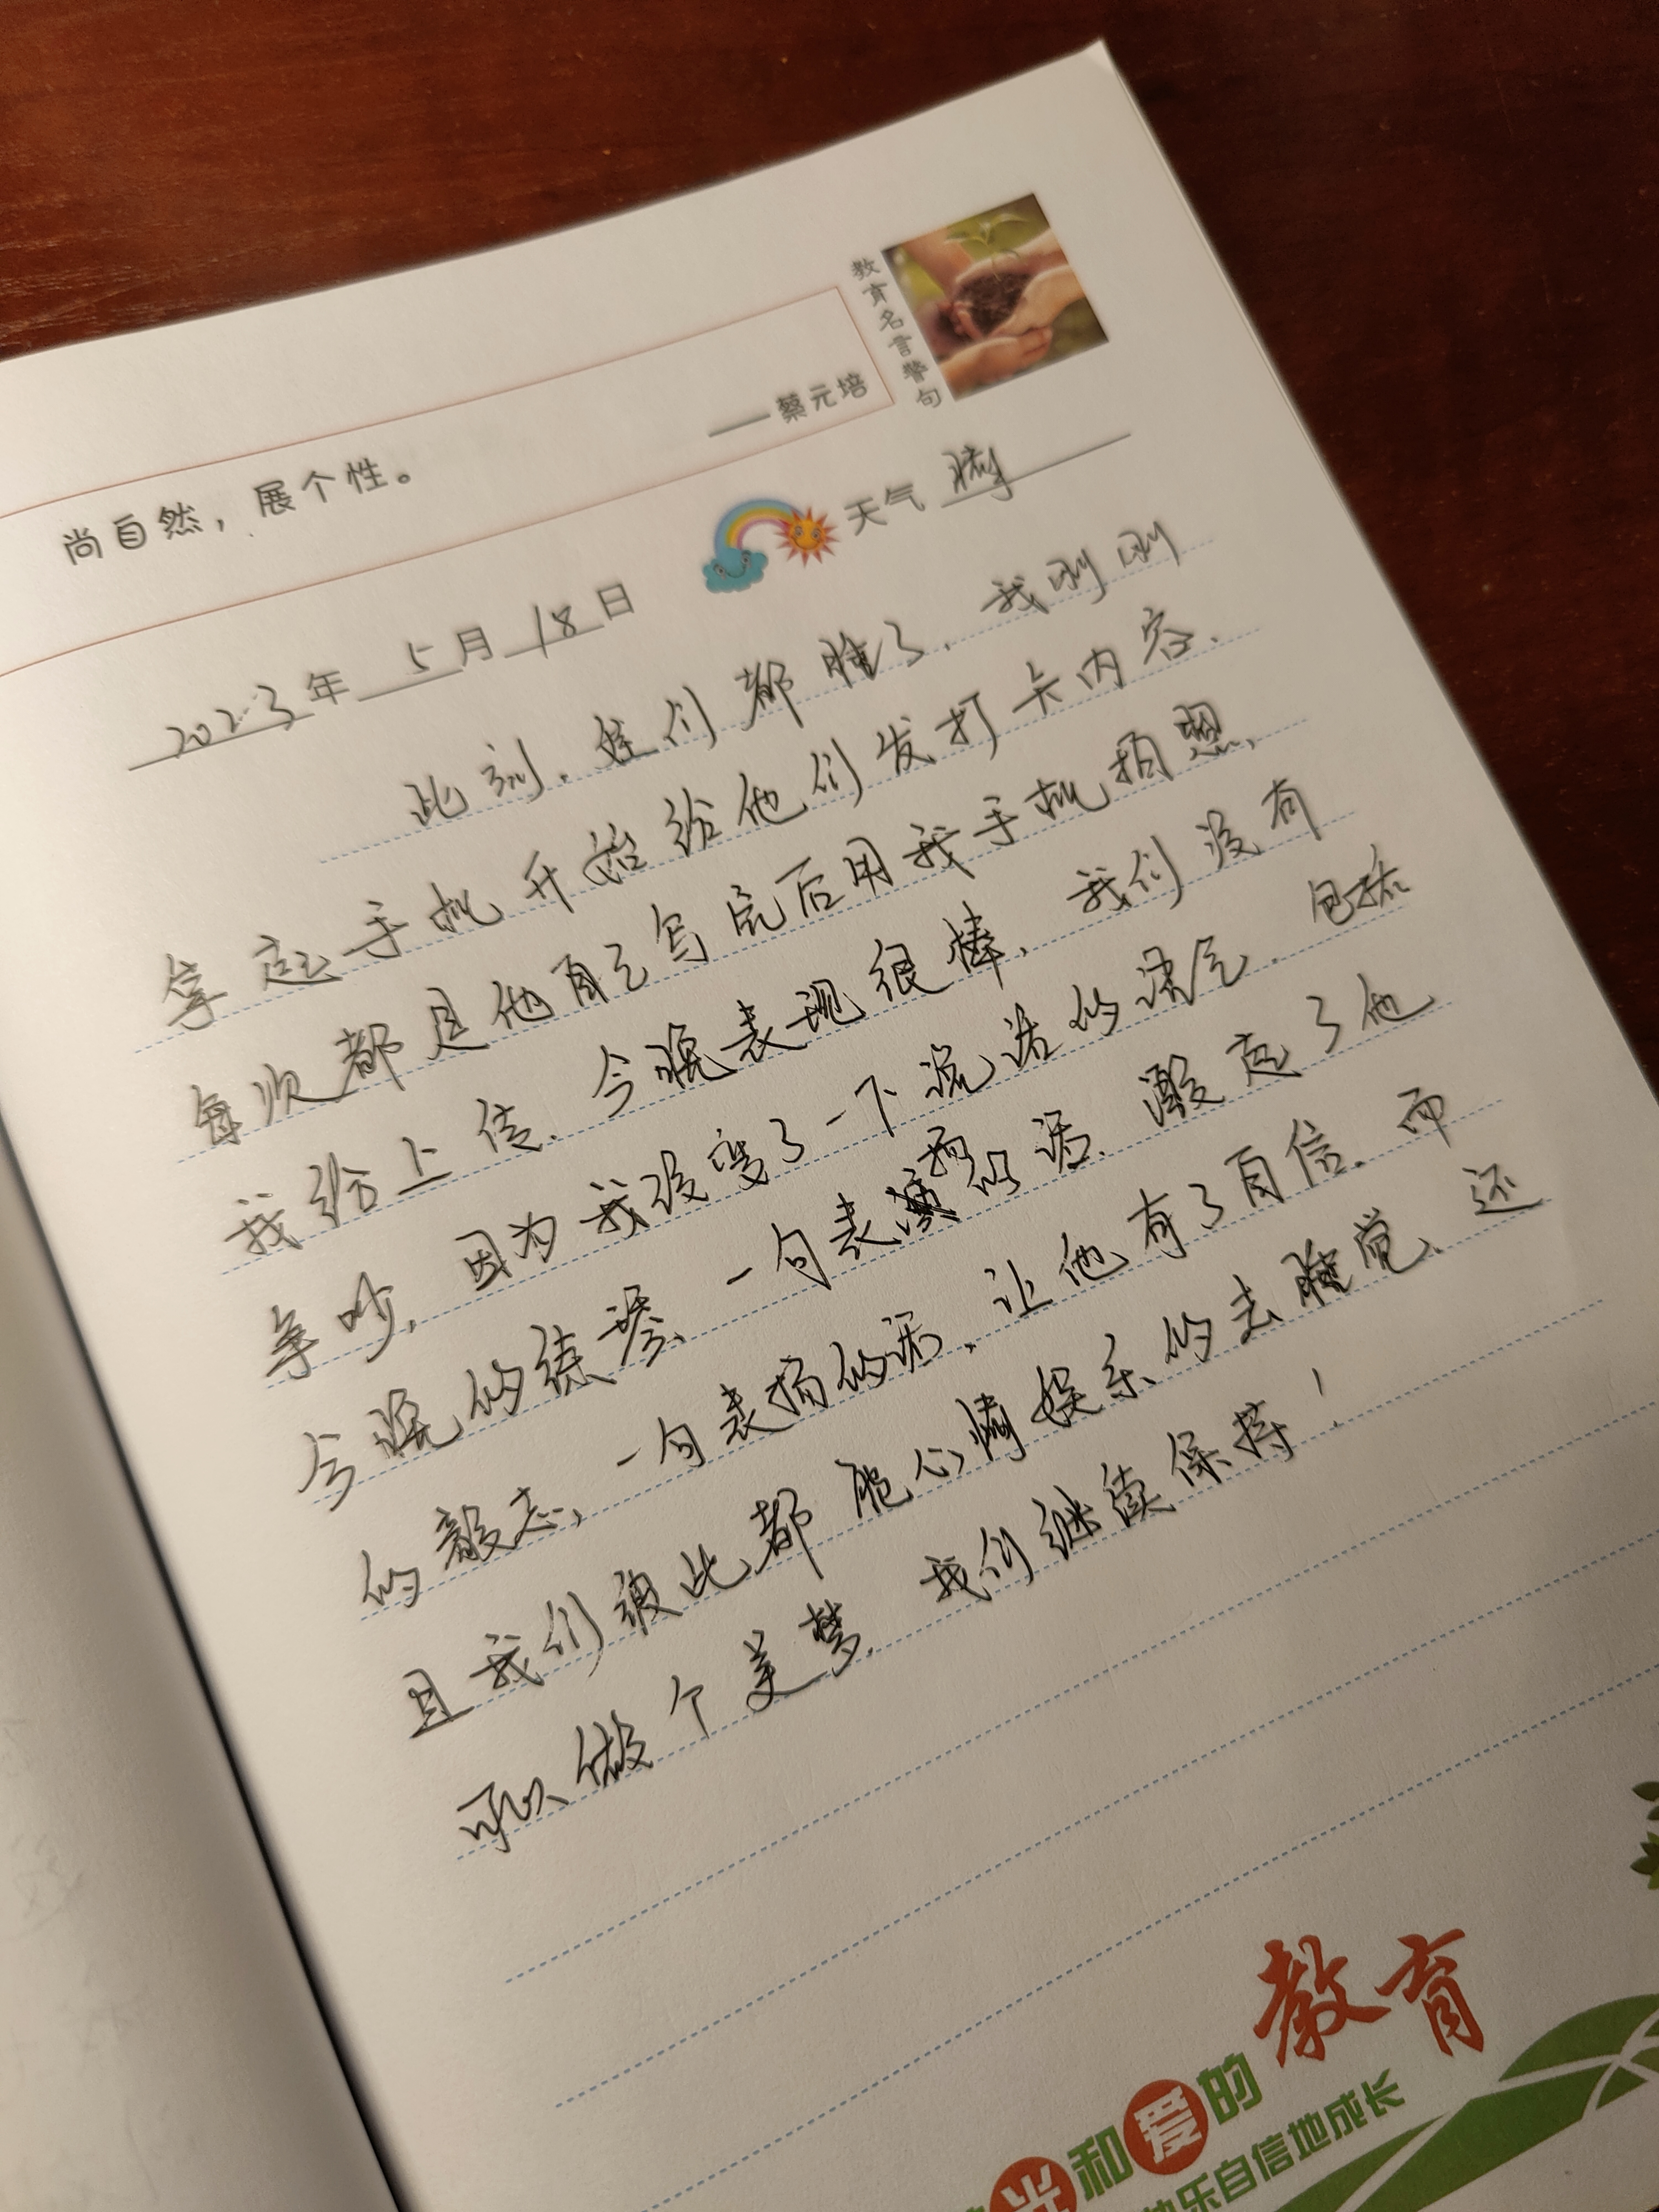 教育名言警句
——蔡元培
尚自然，展个性。
天气 晴
2023年 5月18日
此刻，娃们都睡了，我刚刚
拿起手机开始给他们发打卡内容，
每次都是他自己写完后用我手机拍照，
我给上传，今晚表现很棒，我们没有
争吵，因为我改变了一下说话的语气，包括
今晚的练琴，一句表扬的话，激起了他
的毅志，一句表扬的话，让他有了自信，而
且我们彼此都能心情娱乐的去睡觉，还
可以做个美梦，我们继续保持！
教育
光和爱的
快乐自信地成长